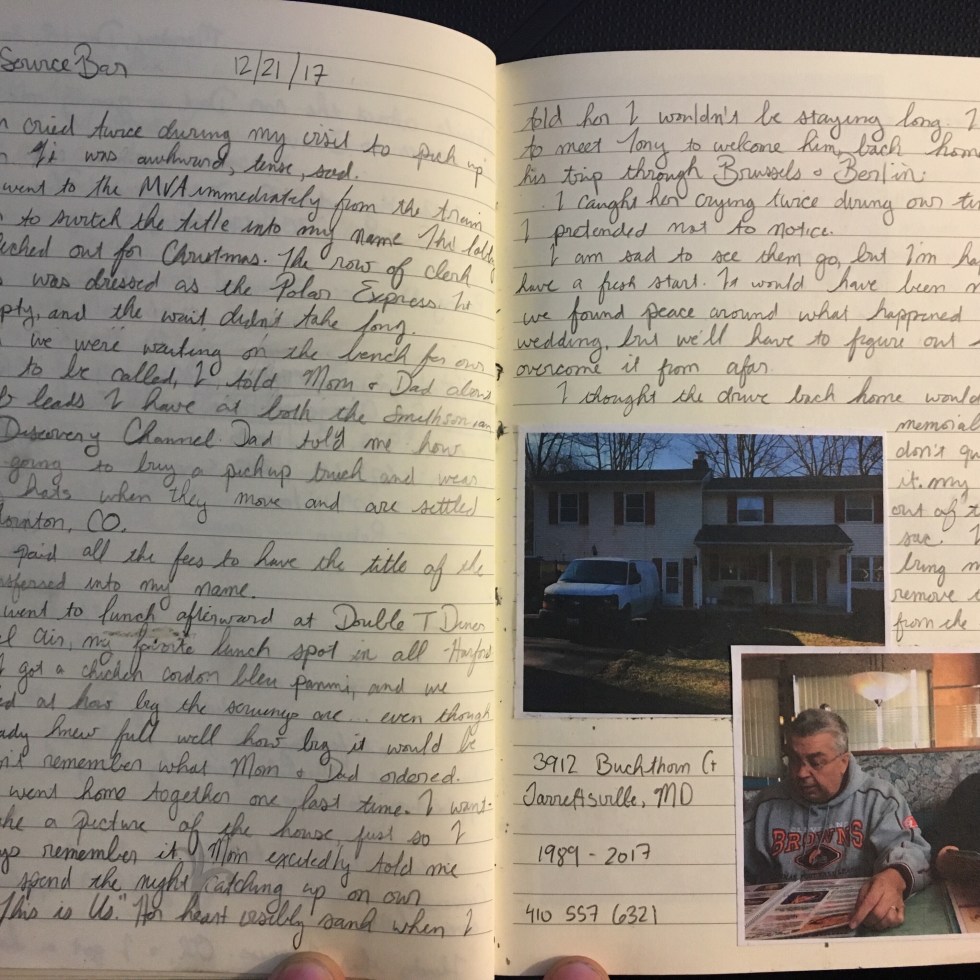 Source Bar 12/21/17
cried twice during my visit to pick up
It was awkward, tense, sad.
went to the MVA immediately from the train
to switch the title into my name. The lobby
decked out for Christmas. The row of clerk
was dressed as the Polar Express. It
pty, and the wait didn't take long.
we were waiting on the bench for our
to be called, I told Mom & Dad about
leads I have at both the Smithsonian
Discovery Channel. Dad told me how
going to buy a pickup truck and wear
hats when they move and are settled
Thornton, CO.
paid all the fees to have the title of the
nsferred into my name.
went to lunch afterward at Double T Diner
el Air, my favorite lunch spot in all Harford
I got a chicken cordon bleu panini, and we
ed at how big the servings are... even though
ady knew full well how big it would be
n't remember what Mom & Dad ordered.
went home together one last time. I want-
ke a picture of the house just so I
ys remember it. Mom excitedly told me
spend the night catching up on our
"This is Us." Her heart visibly sank when I
told her I wouldn't be staying long. I
to meet Tony to welcome him back home
his trip through Brussels & Berlin.
I caught her crying twice during our
I pretended not to notice.
I am sad to see them go, but I'm ha
have a fresh start. It would have been
we found peace around what happened
wedding, but we'll have to figure out
overcome it from afar.
I thought the drive back home would
memorial
don't qu
it. my
out of t
sac.
bring m
remove
from the
BROWNS
3912 Buckthorn Ct
Jarrettsville, MD
1989 - 2017
410 557 6321